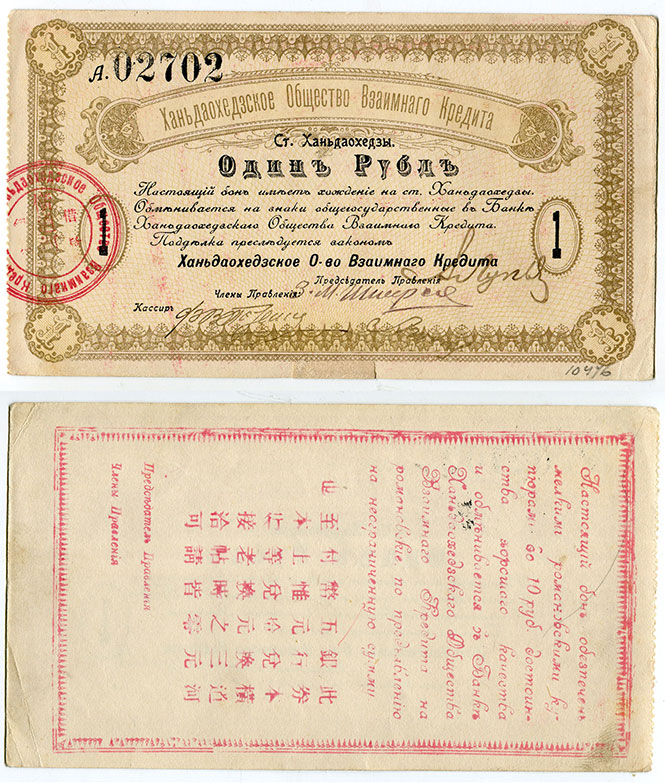 А. 02702
Ханьдаохедзское Общество Взаимнаго Кредита
Ст. Ханьдаохедзы.
Одинъ Рубль
Настоящій бонъ имѣетъ хожденіе на ст. Ханьдаохедзы.
Обмѣнивается на знаки общегосударственные въ Банкѣ
Ханьдаохедзскаго Общества Взаимнаго Кредита.
Поддѣлка преслѣдуется закономъ
1
Ханьдаохедзское О-во Взаимнаго Кредита
Предсѣдатель Правленія
Члены Правленія
Кассиръ
Общество Взаимнаго
10476
Настоящій бонъ обезпеченъ
мелкими романовскими ку-
пюрами до 10 руб. достоин-
ства хорошаго качества
и обмѣнивается въ Банкѣ
Ханьдаохедзскаго Общества
Взаимнаго Кредита на
романовскіе, по предъявленію
на неограниченную сумму
此券本橫道河
銀行兌換三元
五元拾元之零
幣惟兌換瞞皆
村上等老帖請
至本接洽可
Предсѣдатель Правленія
Члены Правленія